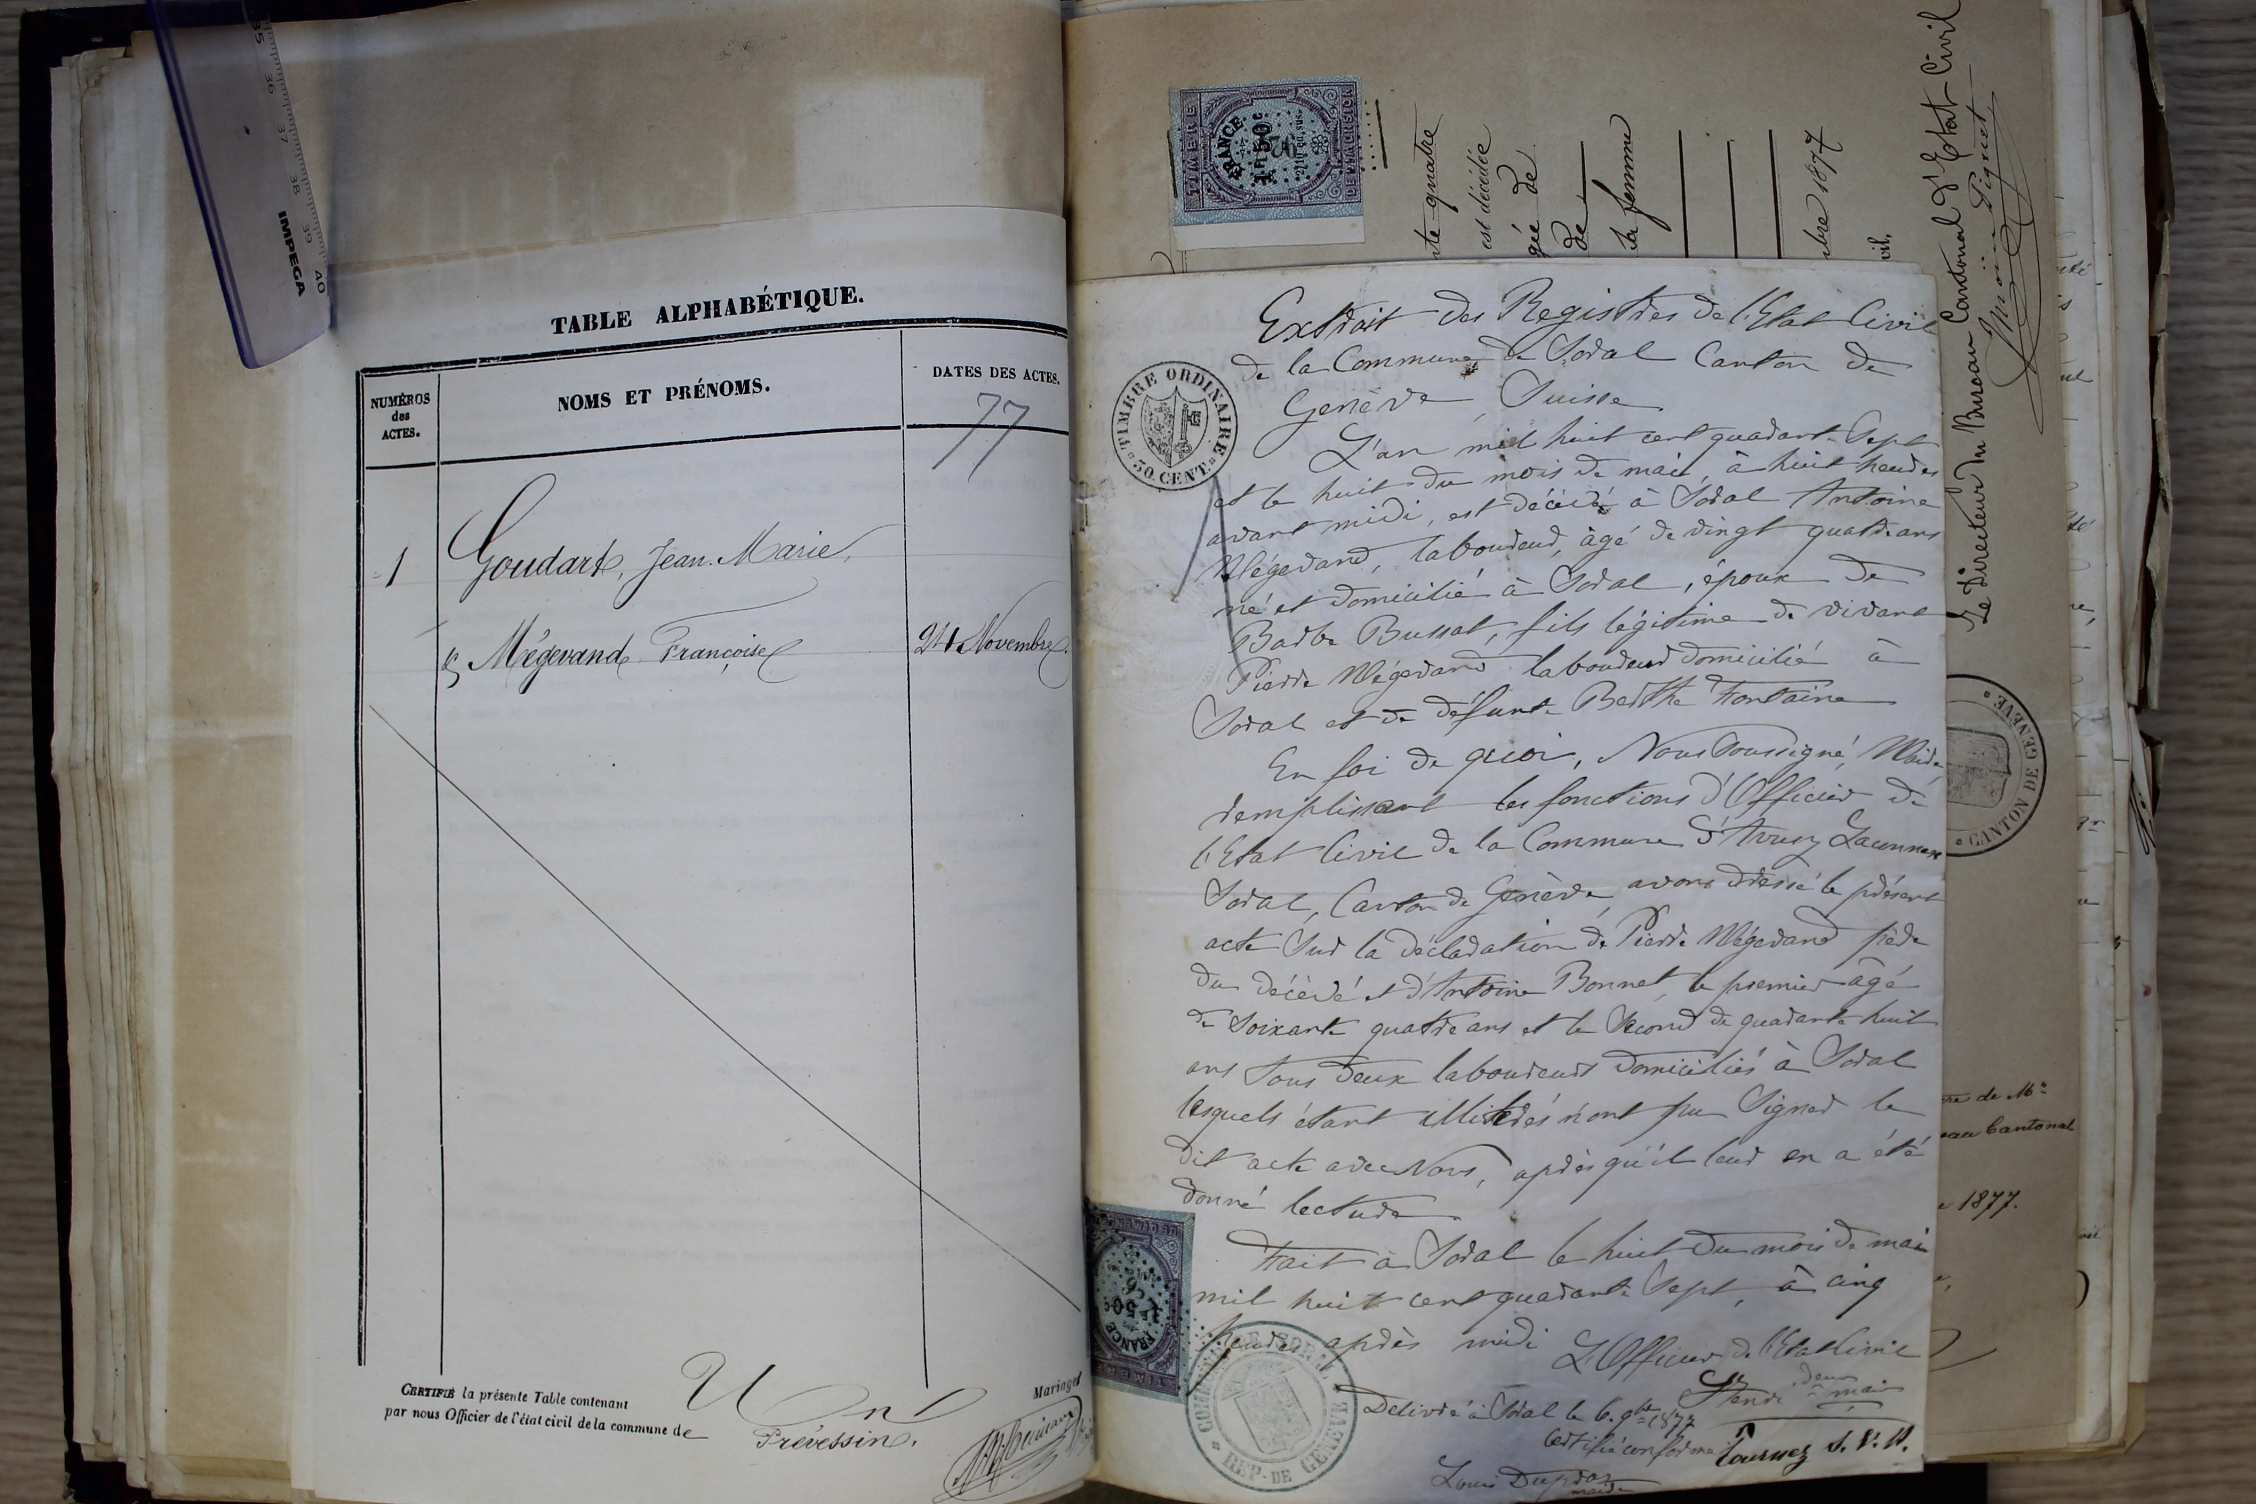 TABLE ALPHABÉTIQUE.
NUMÉROS
des
ACTES.
NOMS ET PRÉNOMS.
DATES DES ACTES.
77
1
Goudart, Jean-Marie,
& Mégevand Françoise
24 Novembre
CERTIFIÉ la présente Table contenant Un Mariage
par nous Officier de l'état civil de la commune de Prévessin.
35 36 37 38 39 40
IMPEGA
TIMBRE
FRANCE
1f 50c
2/10 en sus
DE DIMENSION
te quatre
est décédée
gée de
de
la femme
bre 1877
vil,
Le Directeur du Bureau Cantonal d'Etat Civil
CANTON DE GENÈVE
re de Mr
eau Cantonal
1877.
TIMBRE ORDINAIRE
50 CENT.
Extrait des Registres de l'Etat Civil
de la Commune de Soral Canton de
Genève Suisse
L'an mil huit cent quarante Sept
et le huit du mois de mai, à huit heures
avant midi, est décédé à Soral Antoine
Mégevand, laboureur, âgé de vingt quatre ans
né et domicilié à Soral, époux de
Barbe Bussat, fils légitime de vivant
Pierre Mégevand laboureur domicilié à
Soral et de défunte Berthe Fontaine
En foi de quoi, Nous Soussigné, Maire
remplissant les fonctions d'Officier de
l'Etat Civil de la Commune d'Avusy Laconnex
Soral, Canton de Genève, avons dressé le présent
acte Sur la déclaration de Pierre Mégevand père
du décédé et d'Antoine Bonnet, le premier âgé
de Soixante quatre ans et le Second de quarante huit
ans tous deux laboureurs domiciliés à Soral
lesquels étant illitérés n'ont pu Signer le
dit acte avec Nous, après qu'il leur en a été
donné lecture.
Fait à Soral le huit du mois de mai
mil huit cent quarante Sept, à cinq
heures après midi L'Officier de l'Etat Civil
Delivré à Soral le 6. 9bre 1877
Certifié conforme
Louis Dupraz
maire
FRANCE
50c
REP. DE GENÈVE